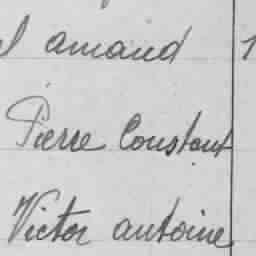 amand 1
Pierre Constant
Victor antoine